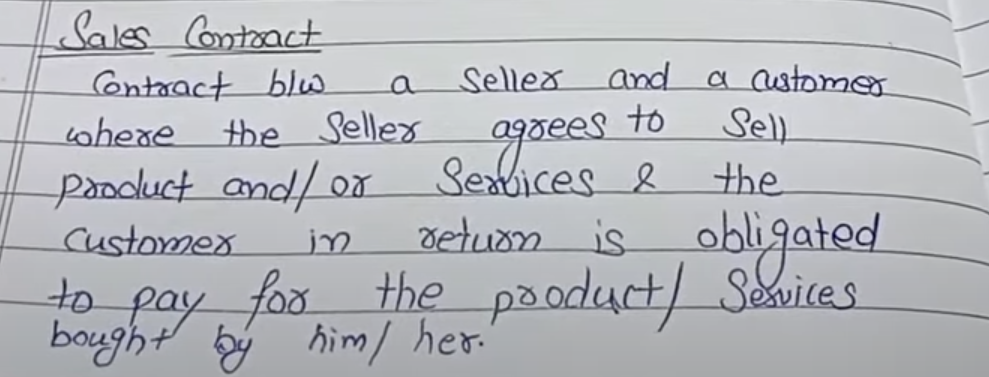 Sales Contract
Contract b/w a Seller and a customer
where the Seller agrees to Sell
product and/or Services & the
customer in return is obligated
to pay for the product/ Services
bought by him/ her.